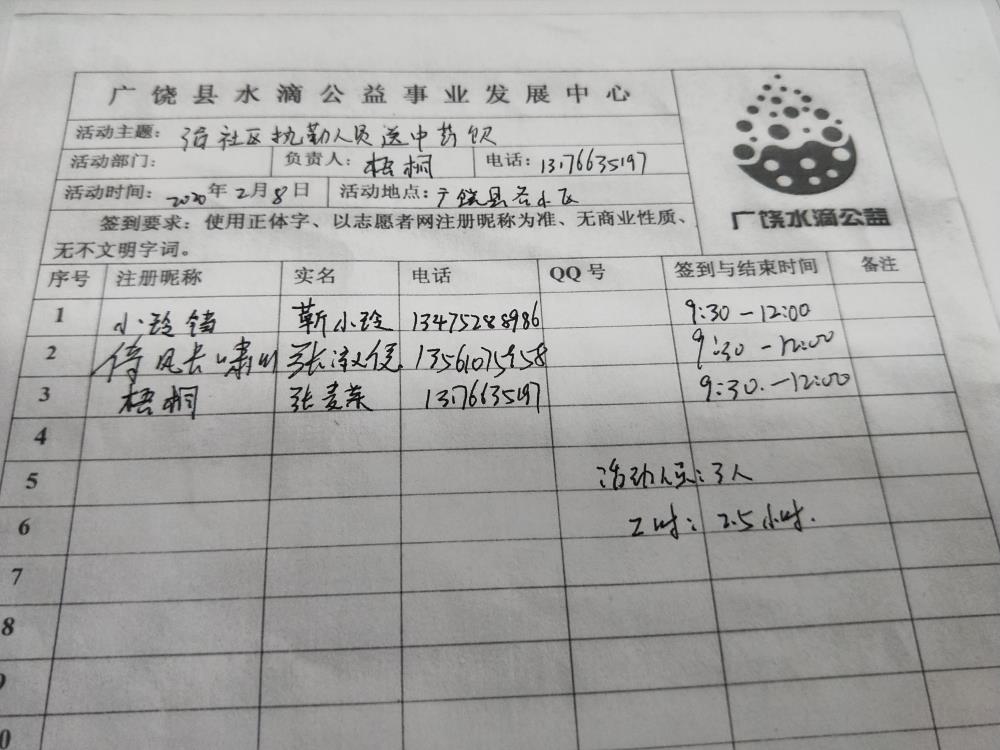 广饶县水滴公益事业发展中心
活动主题: 给社区执勤人员送中药饮
活动部门: 负责人: 梧桐 电话: 13176635197
活动时间: 2020年2月8日 活动地点: 广饶县各小区
签到要求: 使用正体字、以志愿者网注册昵称为准、无商业性质、
无不文明字词。
广饶水滴公益
序号 注册昵称 实名 电话 QQ号 签到与结束时间 备注
1 小玲铛 靳小玲 13475288986 9:30-12:00
2 倚风长啸 张 9:30-12:00
3 梧桐 张麦荣 13176635197 9:30-12:00
4
5 活动人员: 3人
6 工时: 2.5小时.
7
8